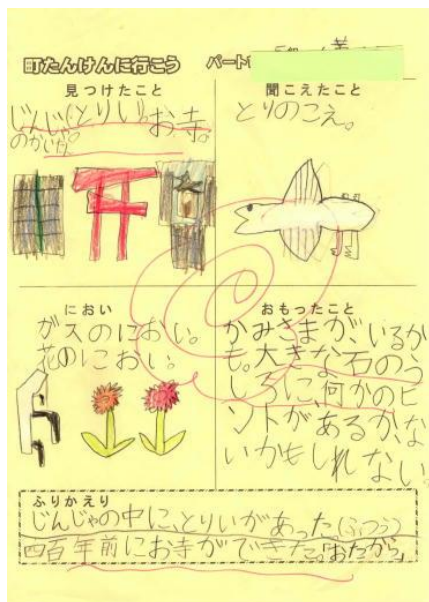 町たんけんに行こう パート
見つけたこと
じんじゃ(とりい)お寺。
のかいだん
聞こえたこと
とりのこえ。
におい
ガスのにおい。
花のにおい。
おもったこと
かみさまが、いるか
も。大きな石のう
しろに、何かのヒ
ントがあるか、な
いかもしれない。
ふりかえり
じんじゃの中に、とりいがあった(ふつう)
四百年前にお寺ができた。「おたから」